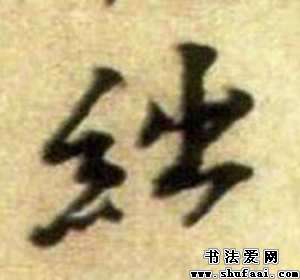 绌
书法爱网
www.shufaai.com